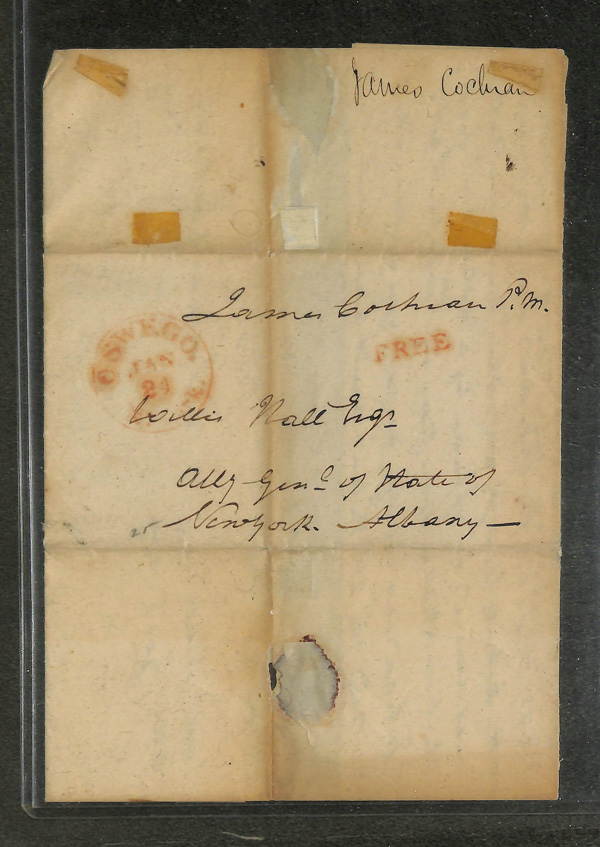 James Cochran
James Cochran P.M.
OSWEGO.
JAN
24
FREE
Willis Hall Esqr
Atty Genl of State of
New York. Albany —